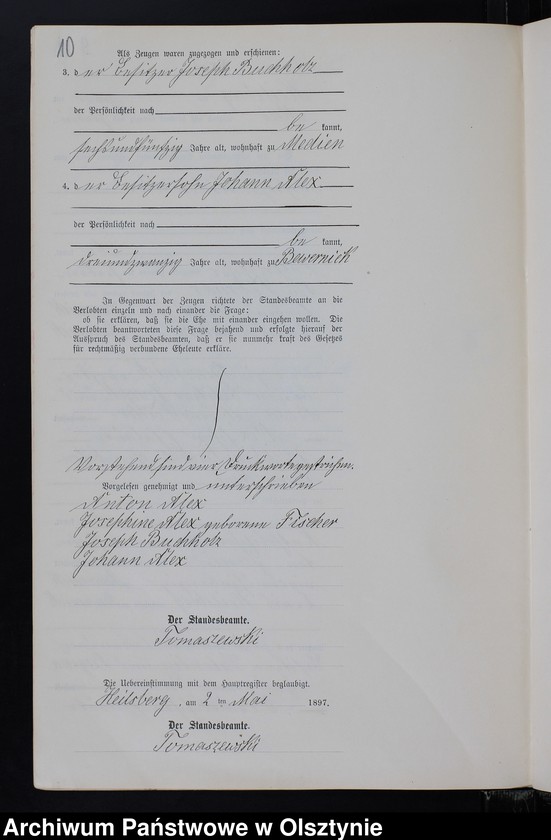 10
Als Zeugen waren zugezogen und erschienen:
3. der Besitzer Joseph Buchholz
der Persönlichkeit nach
be kannt,
sechsundfünfzig Jahre alt, wohnhaft zu Medien
4. der Besitzersohn Johann Alex
der Persönlichkeit nach
be kannt,
dreiundzwanzig Jahre alt, wohnhaft zu Bewernick
In Gegenwart der Zeugen richtete der Standesbeamte an die
Verlobten einzeln und nach einander die Frage:
ob sie erklären, daß sie die Ehe mit einander eingehen wollen. Die
Verlobten beantworteten diese Frage bejahend und erfolgte hierauf der
Ausspruch des Standesbeamten, daß er sie nunmehr kraft des Gesetzes
für rechtmäßig verbundene Eheleute erkläre.
Vorstehend sind vier Druckworte gestrichen.
Vorgelesen genehmigt und unterschrieben
Anton Alex
Josephine Alex geborene Fischer
Joseph Buchholz
Johann Alex
Der Standesbeamte.
Tomaszewski
Die Uebereinstimmung mit dem Hauptregister beglaubigt.
Heilsberg, am 2 ten Mai 1897.
Der Standesbeamte.
Tomaszewski
Archiwum Państwowe w Olsztynie